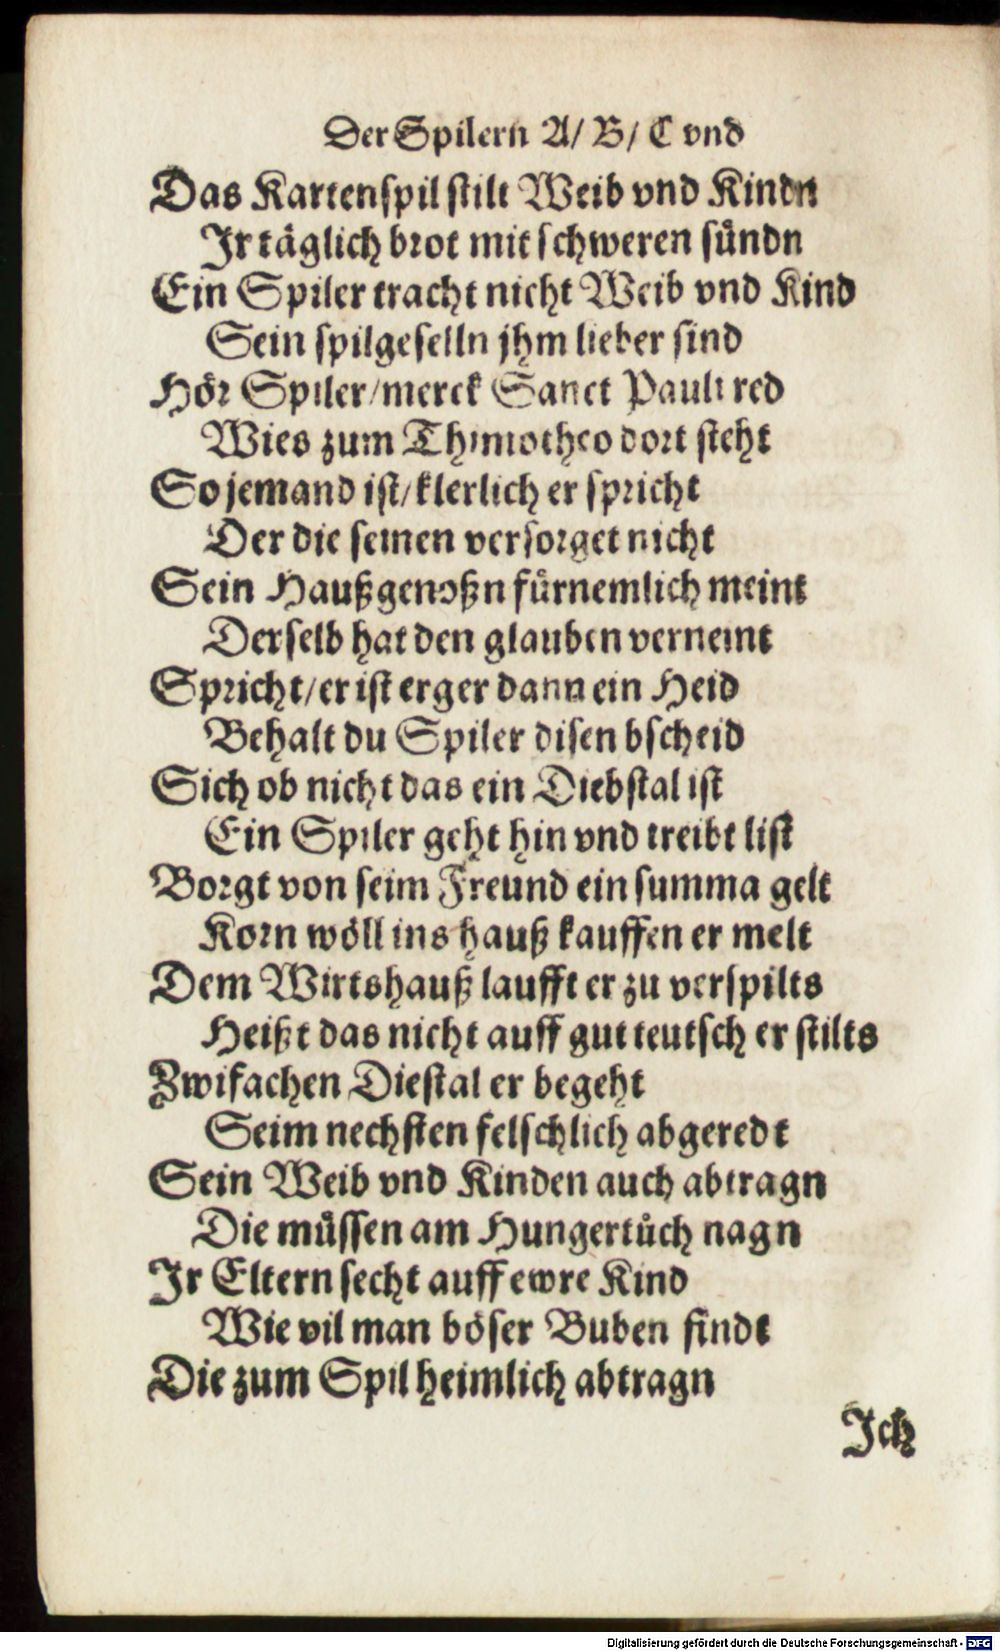 Der Spilern A/ B/ C vnd
Das Kartenspil stilt Weib vnd Kindn
Jr täglich brot mit schweren sündn
Ein Spiler tracht nicht Weib vnd Kind
Sein spilgeselln jhm lieber sind
Hör Spiler/merck Sanct Pauli red
Wies zum Thimotheo dort steht
So jemand ist/klerlich er spricht
Der die seinen versorget nicht
Sein Haußgenoßn fürnemlich meint
Derselb hat den glauben verneint
Spricht/er ist erger dann ein Heid
Behalt du Spiler disen bscheid
Sich ob nicht das ein Diebstal ist
Ein Spiler geht hin vnd treibt list
Borgt von seim Freund ein summa gelt
Korn wöll ins hauß kauffen er melt
Dem Wirtshauß laufft er zu verspilts
Heißt das nicht auff gut teutsch er stilts
Zwifachen Diestal er begeht
Seim nechsten felschlich abgeredt
Sein Weib vnd Kinden auch abtragn
Die müssen am Hungertůch nagn
Jr Eltern secht auff ewre Kind
Wie vil man böser Buben findt
Die zum Spil heimlich abtragn
Jch
Digitalisierung gefördert durch die Deutsche Forschungsgemeinschaft - DFG